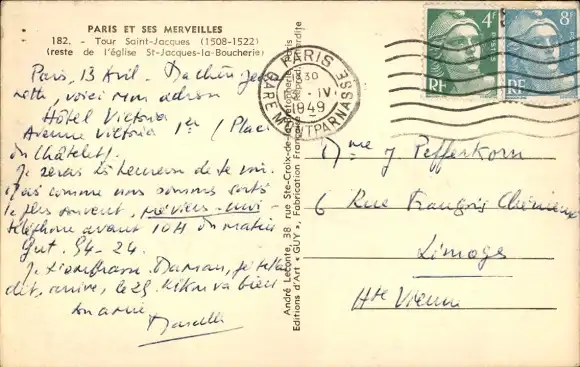 PARIS ET SES MERVEILLES
182. - Tour Saint-Jacques (1508-1522)
(reste de l'église St-Jacques-la-Boucherie)
Paris, 13 Avril - Ma chère Jean
nette, voici mon adresse
Hôtel Victoria
Avenue Victoria 1er (Place
du Châtelet).
Je serai heureux de te voir.
Mais comme nous sommes sortis
le plus souvent, préviens-moi
téléphone avant 10H du matin
Gut. 54-24.
Damian, je te l'ai
dit, arrive le 25. va bien
André Leconte, 38, rue Ste-Croix-de-la-Bretonnerie, Paris
Editions d'Art « GUY », Fabrication Française (Reprod. interdite
PARIS
30
IV
1949
GARE MONTPARNASSE
4F
RF
8F
RF
Mme J Pefferkorn
6 Rue François Chénieux
Limoges
Hte Vienne